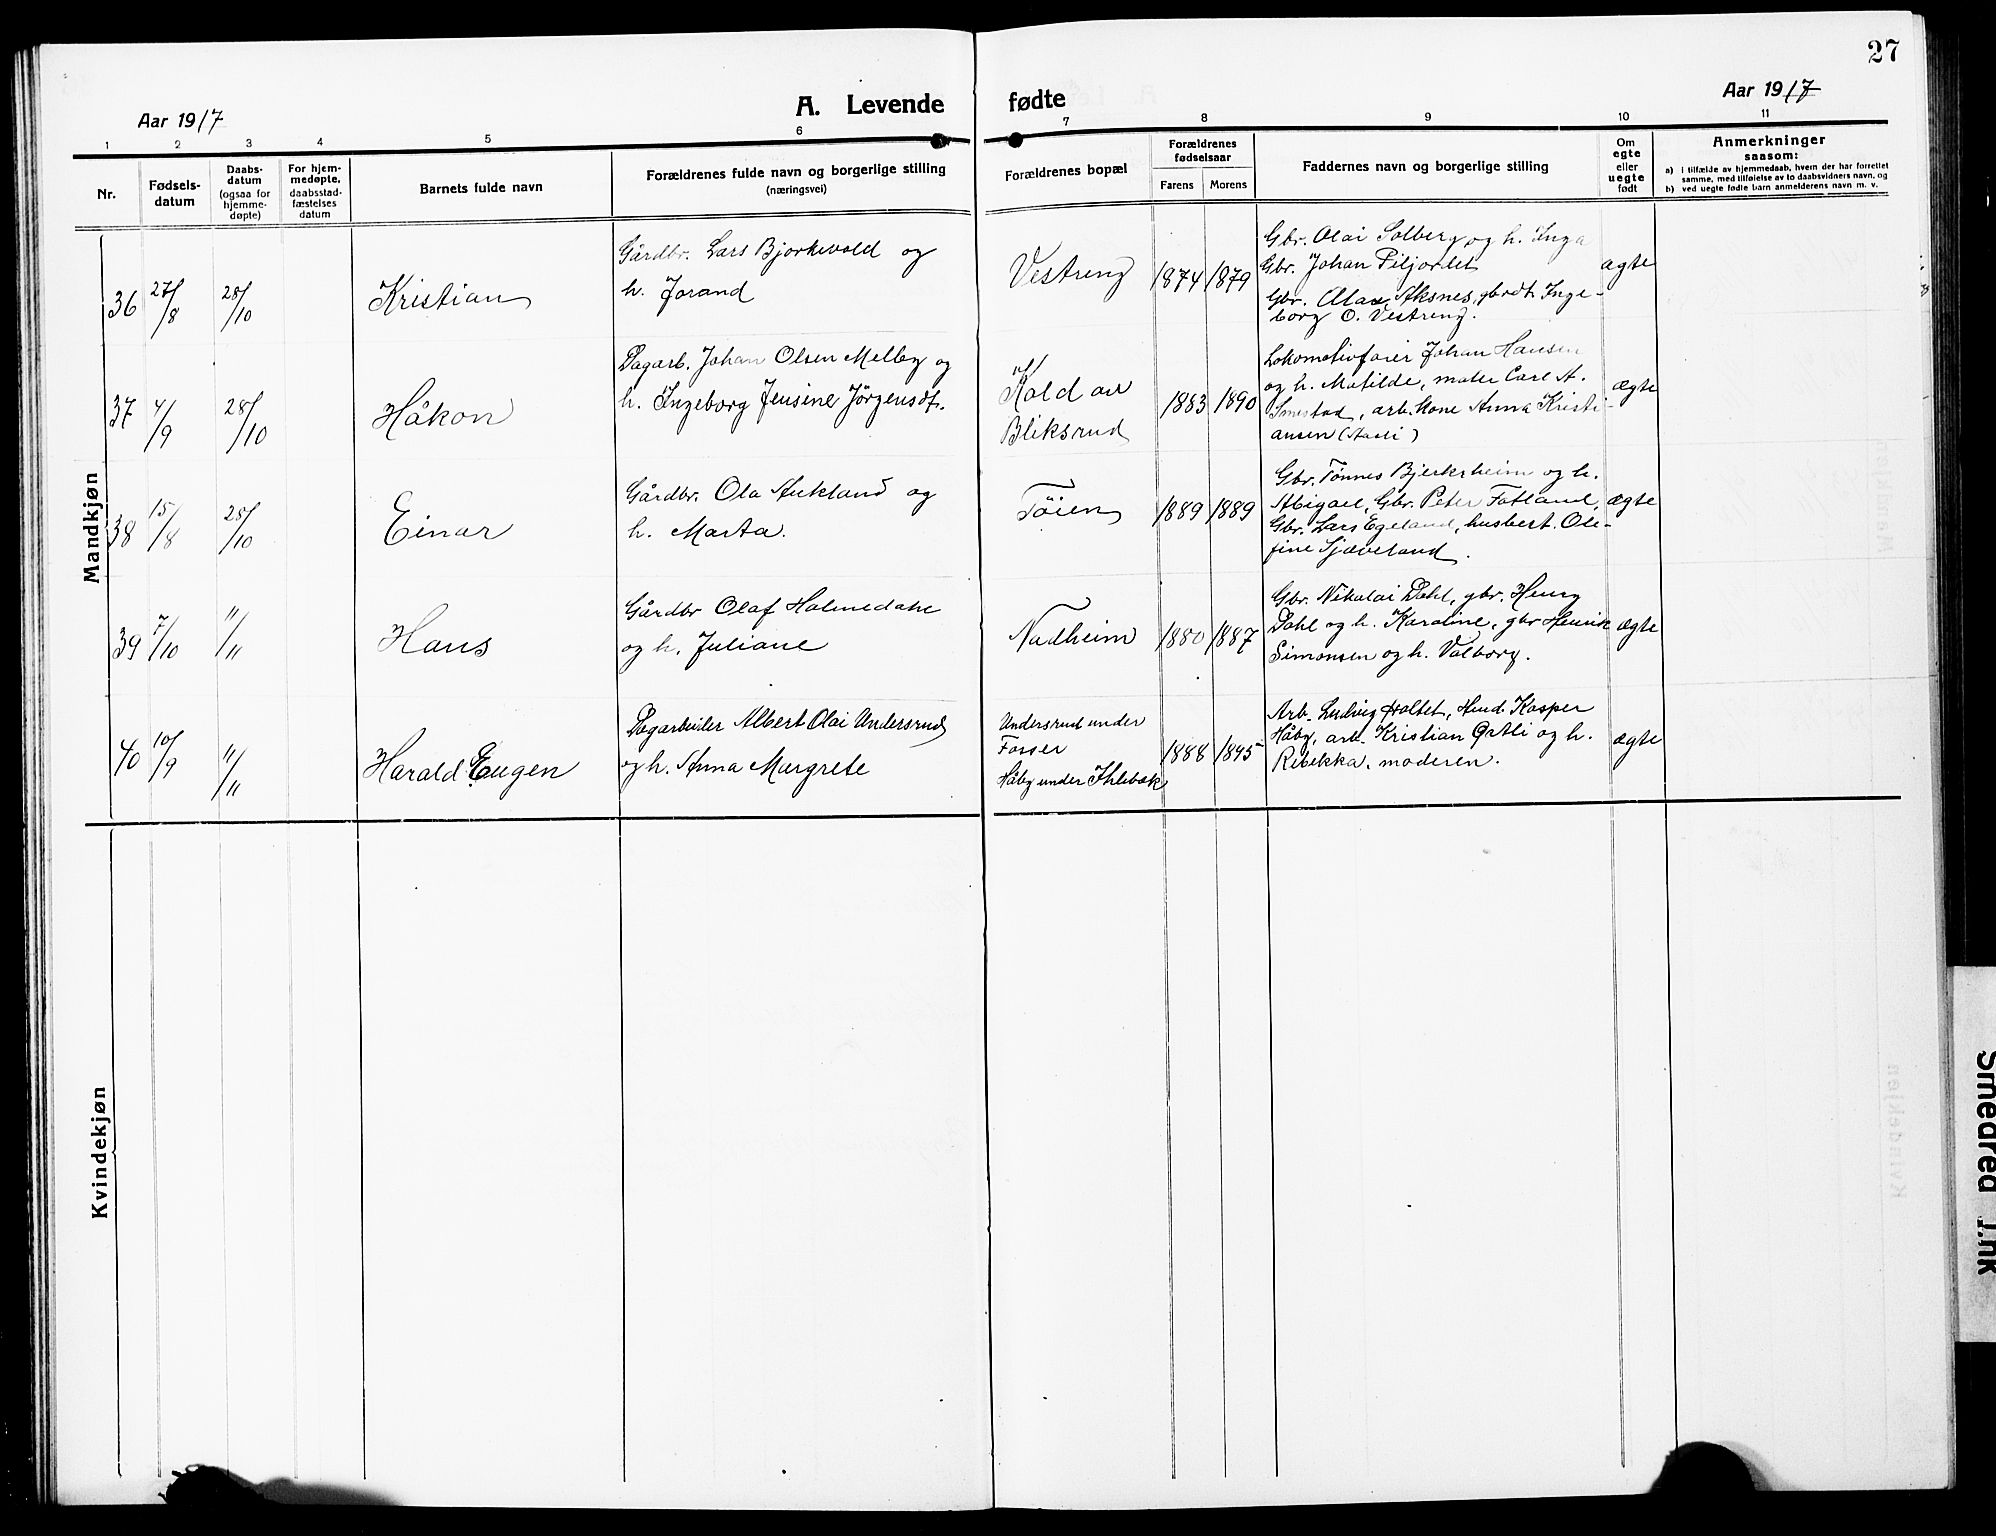 27
Aar 1917
A. Levende fødte
Aar 1917
1 2 3 4 5 6 7 8 9 10 11
Nr.
Fødsels-
datum
Daabs-
datum
(ogsaa for
hjemme-
døpte)
For hjem-
medøpte,
daabsstad-
fæstelses
datum
Barnets fulde navn
Forældrenes fulde navn og borgerlige stilling
(næringsvei)
Forældrenes bopæl
Forældrenes
fødselsaar
Farens Morens
Faddernes navn og borgerlige stilling
Om
egte
eller
uegte
født
Anmerkninger
saasom:
a) i tilfælde av hjemmedaab, hvem der har forrettet
samme, med tilføielse av to daabsvidners navn, og
b) ved uegte fødte barn anmelderens navn m. v.
Mandkjøn
36 27/8 28/10
Kristian
Gårdbr. Lars Bjorkevold og
h. Jorand
Vestreng
1874 1879
Gbr. Olai Solberg og h. Inga
Gbr. Johan Piljordet
Gbr. Aksnes, gbrdt. Inge-
borg O. Vestreng.
ægte
37 4/9 28/10
Håkon
Dagarb. Johan Olsen Melby og
h. Ingeborg Jensine Jörgensdt.
Kold av
Bliksrud
1883 1890
Lokomotivfører Johan Hansen
og h. Matilde, maler Carl A.
Smestad, arb. kone Anna Kristi-
ansen
ægte
38 15/8 28/10
Einar
Gårdbr. Ola Aukland og
h. Marta.
Tøien
1889 1889
Gbr. Tønnes Bjerksheim og h.
Abigael, Gbr. Peter Fotland,
Gbr. Lars Egeland, husbest. Ole-
fine Sjæveland.
ægte
39 7/10 11/11
Hans
Gårdbr Olaf Holmedahl
og h. Juliane
Nadheim
1880 1887
Gbr. Nikolai Dahl, gbr. Henry
Dahl og h. Karoline, gbr Henrik
Simonsen og h. Valborg.
ægte
40 10/9 11/11
Harald Eugen
Dagarbeider Albert Olai Undersrud
og h. Anna Margrete
Undersrud under
Fosser
Håby under Ihlebæk
1888 1895
Arb. Ludvig Holtet, Husd. Kasper
Håby, arb. Kristian Østli og h.
Rebekka, moderen.
ægte
Kvindekjøn